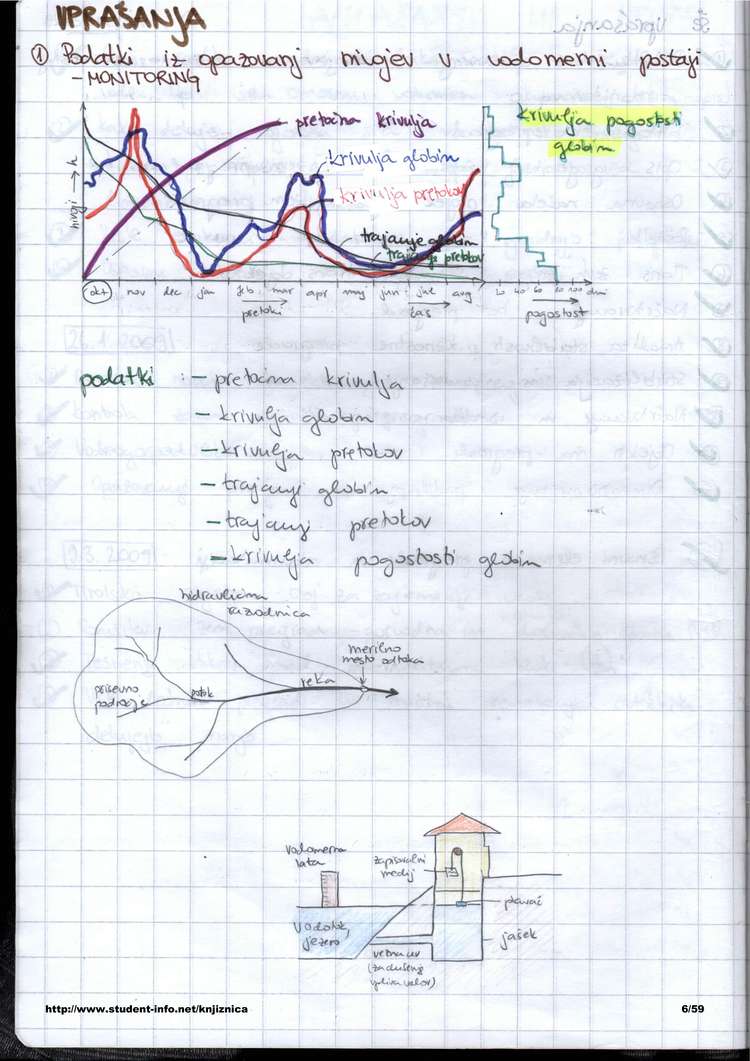 VPRAŠANJA
① Podatki iz opazovanj nivojev v vodomerni postaji
- MONITORING
pretočna krivulja
krivulja globin
krivulja pretokov
trajanje globin
trajanje pretokov
krivulja pogostosti
globin
nivoji → h
okt nov dec jan feb mar apr maj jun jul avg
pretoki
čas
20 40 60 80 100 dni
pogostost
podatki : - pretočna krivulja
- krivulja globin
- krivulja pretokov
- trajanj globin
- trajanj pretokov
- krivulja pogostosti globin
hidravlična
razvodnica
merilno
mesto odtoka
reka
potok
prispevno
področje
vodomerna
lata
zapisovalni
medij
plovač
vodotok,
jezero
jašek
vezna cev
(za dušenje
vpliva valov)
http://www.student-info.net/knjiznica
6/59